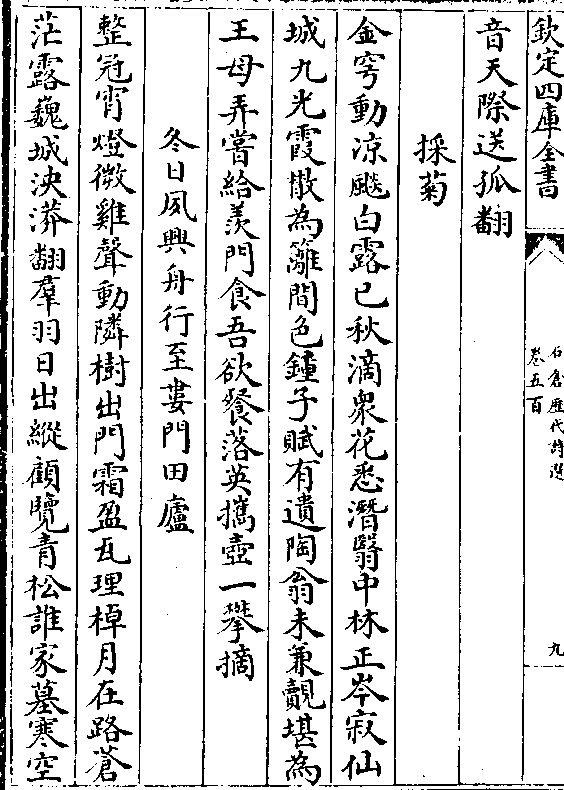 欽定四庫全書
石倉歴代詩選
卷五百
九
音天際送孤翻
採菊
金穸動凉飈白露已秋滴衆花悉潛翳中林正岑寂仙
城九光霞散為籬間色鍾子賦有遺陶翁未兼覿堪為
王母弄嘗給羨門食吾欲餐落英攜壺一攀摘
冬日夙興舟行至婁門田廬
整冠宵燈微雞聲動隣樹出門霜盈瓦理棹月在路蒼
茫露巍城泱漭翻羣羽日出縱顧覽青松誰家墓寒空